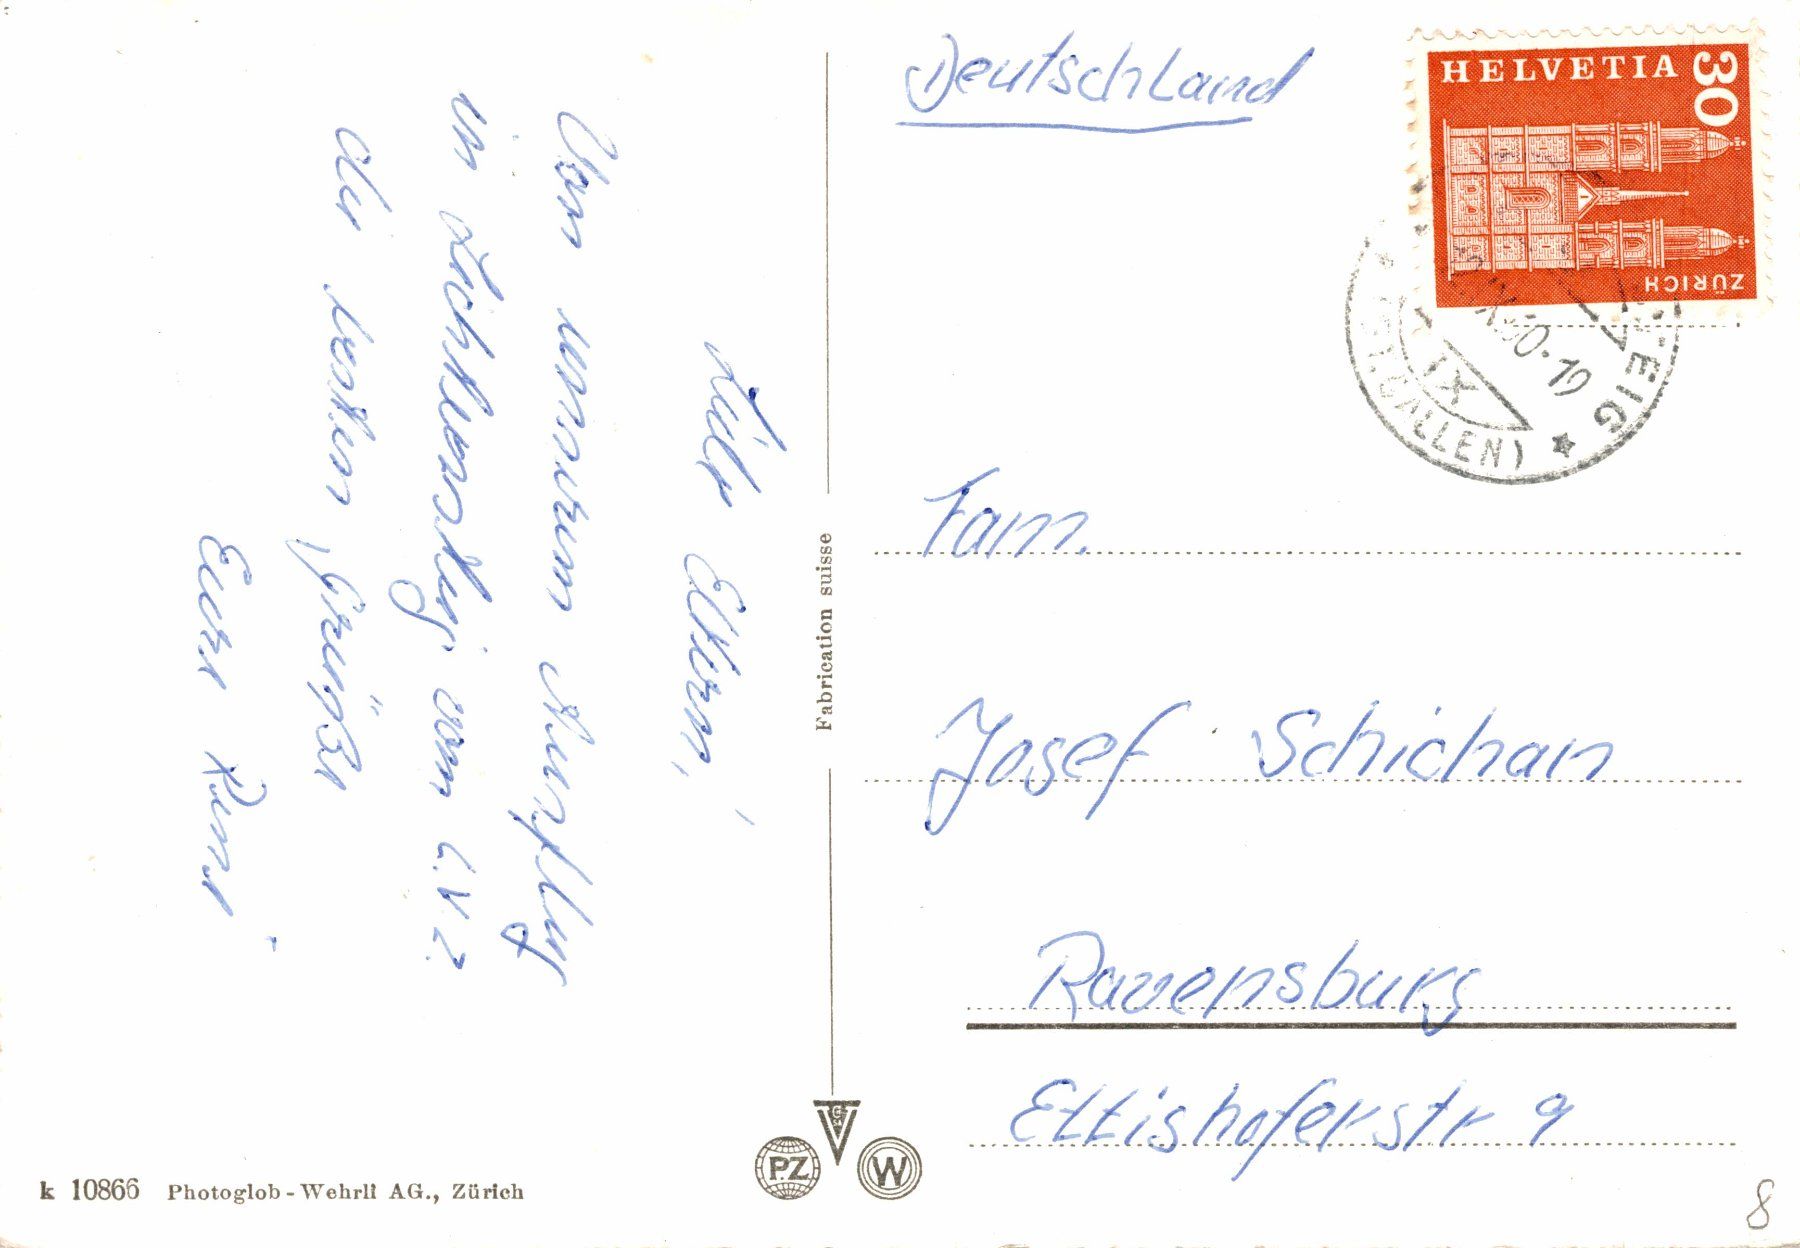 Liebe Eltern,
Von unserem Ausflug
in Lichtensteig vom
die besten Grüße
Eure
Fabrication suisse
Deutschland
HELVETIA
30
ZÜRICH
EIG
IX
-19
(ST. GALLEN)
Fam.
Josef Schichan
Ravensburg
Ettishoferstr 9
PZ
W
k 10866 Photoglob-Wehrli AG., Zürich
8